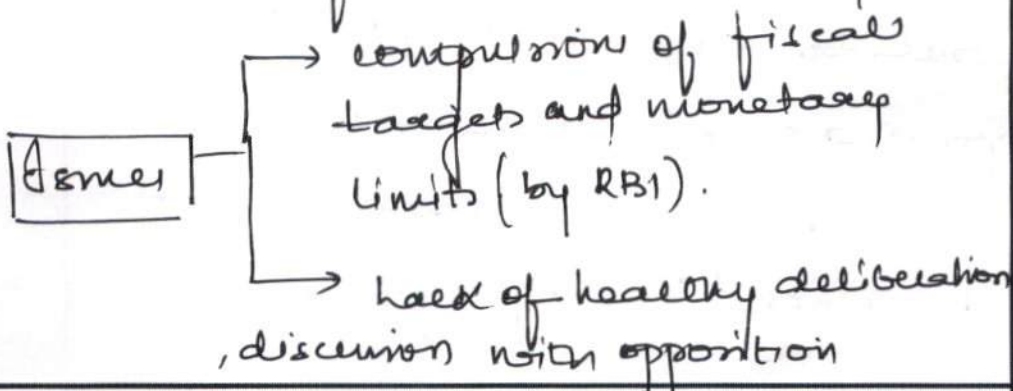 compulsion of fiscal
targets and monetary
limits (by RBI).
Issues
Lack of healthy deliberation
, discussion with opposition